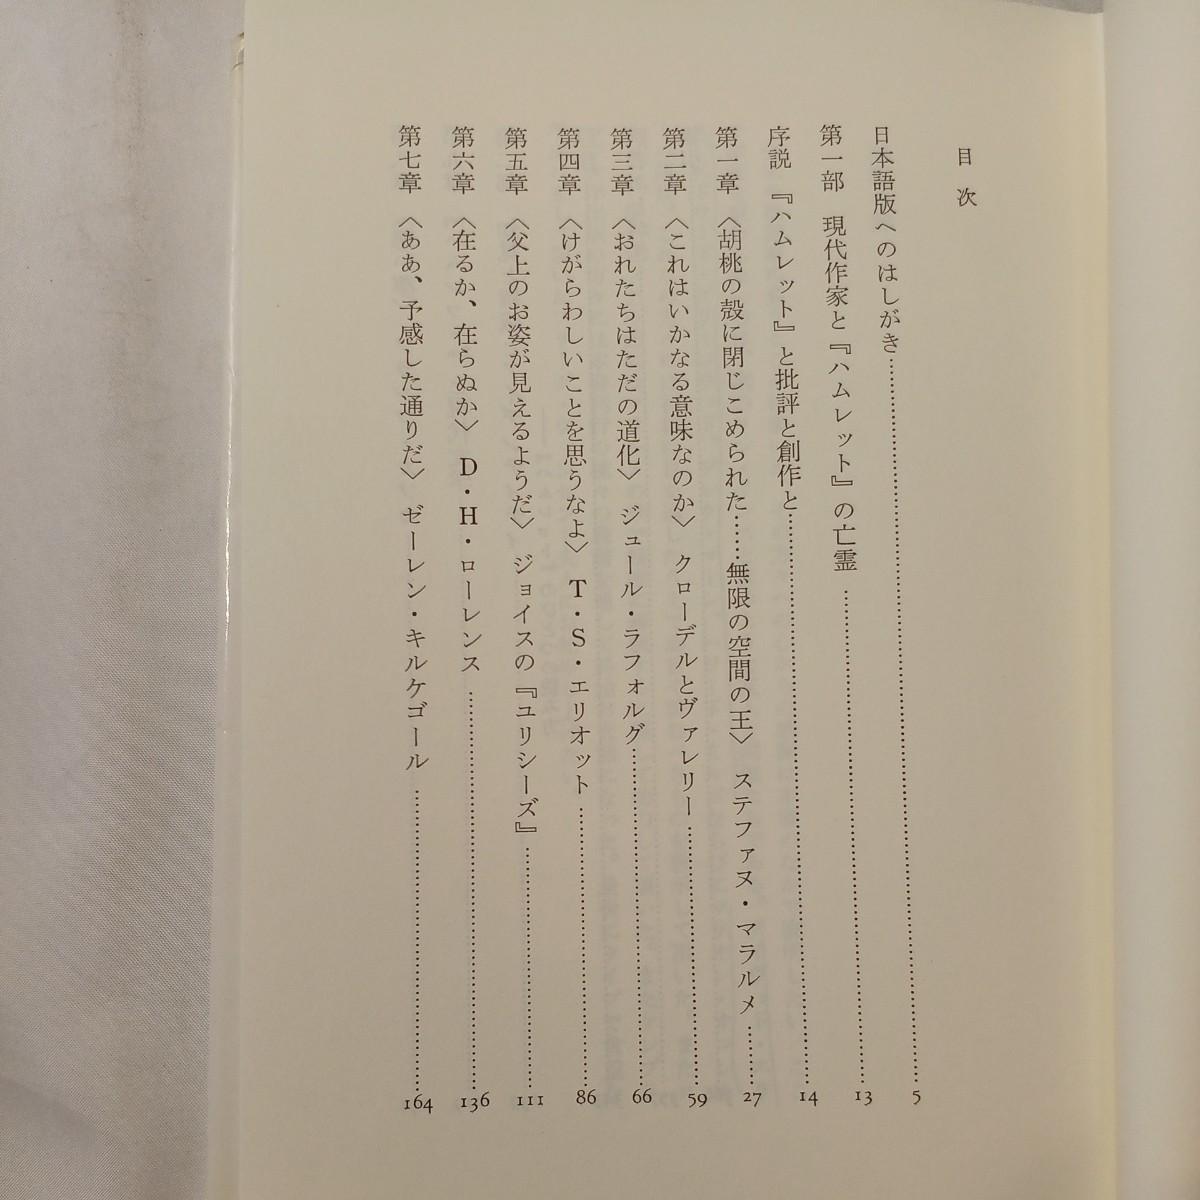 目次
日本語版へのはしがき……………5
第一部　現代作家と『ハムレット』の亡霊……………13
序説　『ハムレット』と批評と創作と……………14
第一章　〈胡桃の殻に閉じこめられた……無限の空間の王〉　ステファヌ・マラルメ……………27
第二章　〈これはいかなる意味なのか〉　クローデルとヴァレリー……………59
第三章　〈おれたちはただの道化〉　ジュール・ラフォルグ……………66
第四章　〈けがらわしいことを思うなよ〉　T・S・エリオット……………86
第五章　〈父上のお姿が見えるようだ〉　ジョイスの『ユリシーズ』……………111
第六章　〈在るか、在らぬか〉　D・H・ローレンス……………136
第七章　〈ああ、予感した通りだ〉　ゼーレン・キルケゴール……………164